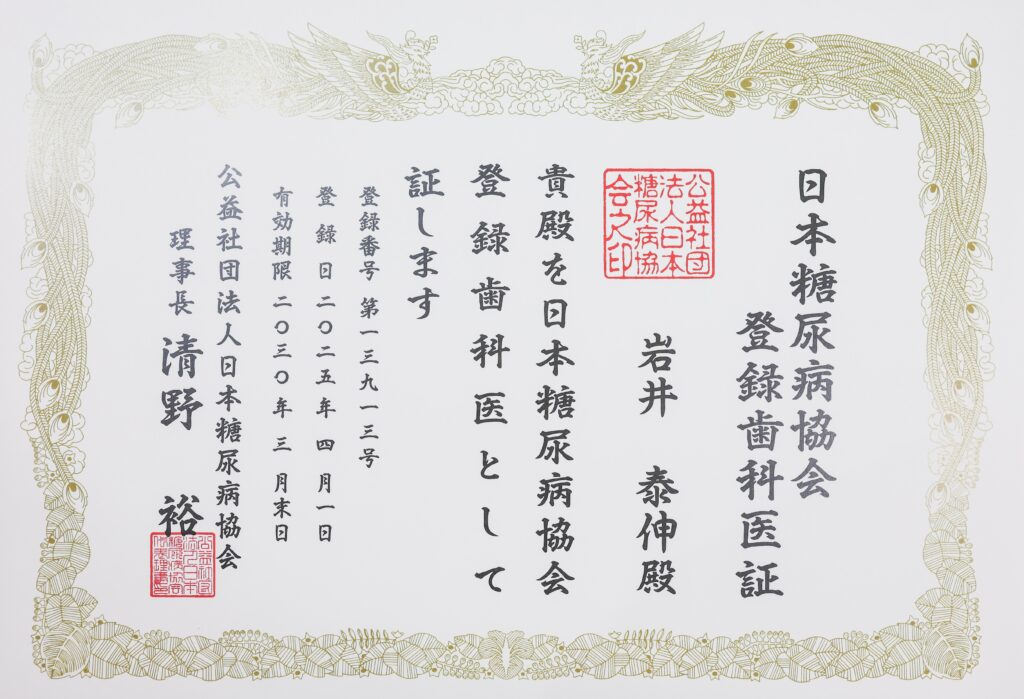 日本糖尿病協会
登録歯科医証
公益社団
法人日本
糖尿病協
会之印
岩井 泰伸殿
貴殿を日本糖尿病協会
登録歯科医として
証します
登録番号 第一三九一三号
登録日 二〇二五年 四月一日
有効期限 二〇三〇年 三月末日
公益社団法人日本糖尿病協会
理事長 清野 裕